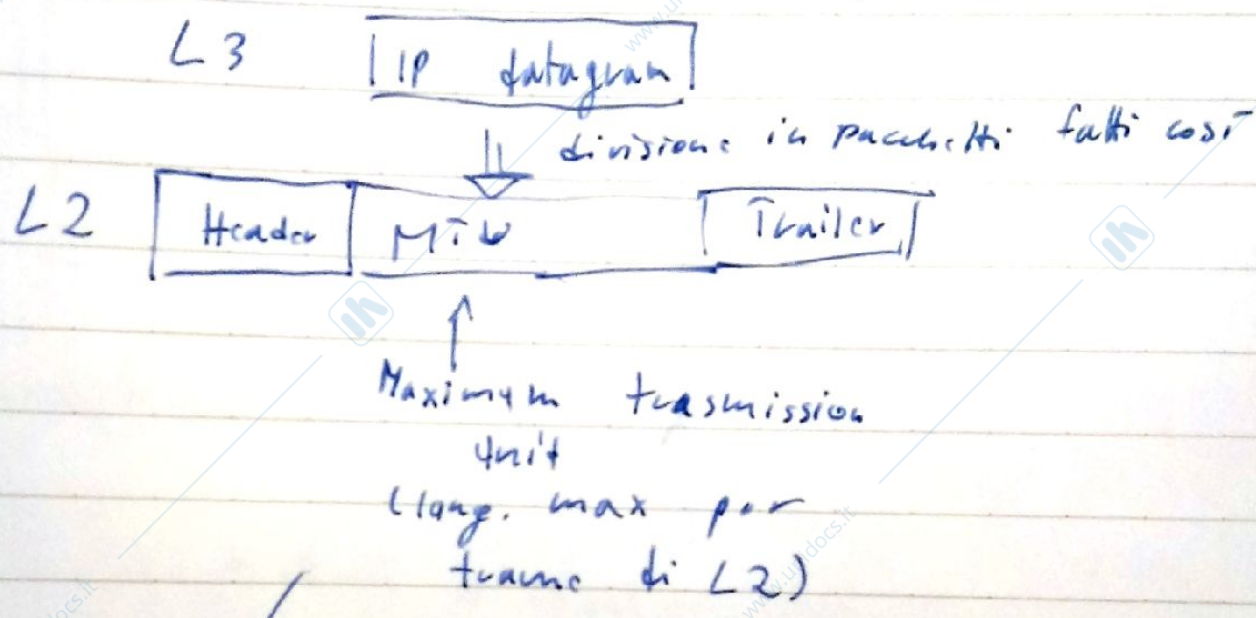 L3 IP datagram
divisione in pacchetti fatti così
L2 Header MTU Trailer
Maximum trasmission
unit
(lung. max per
trame di L2)
www.unidocs.it